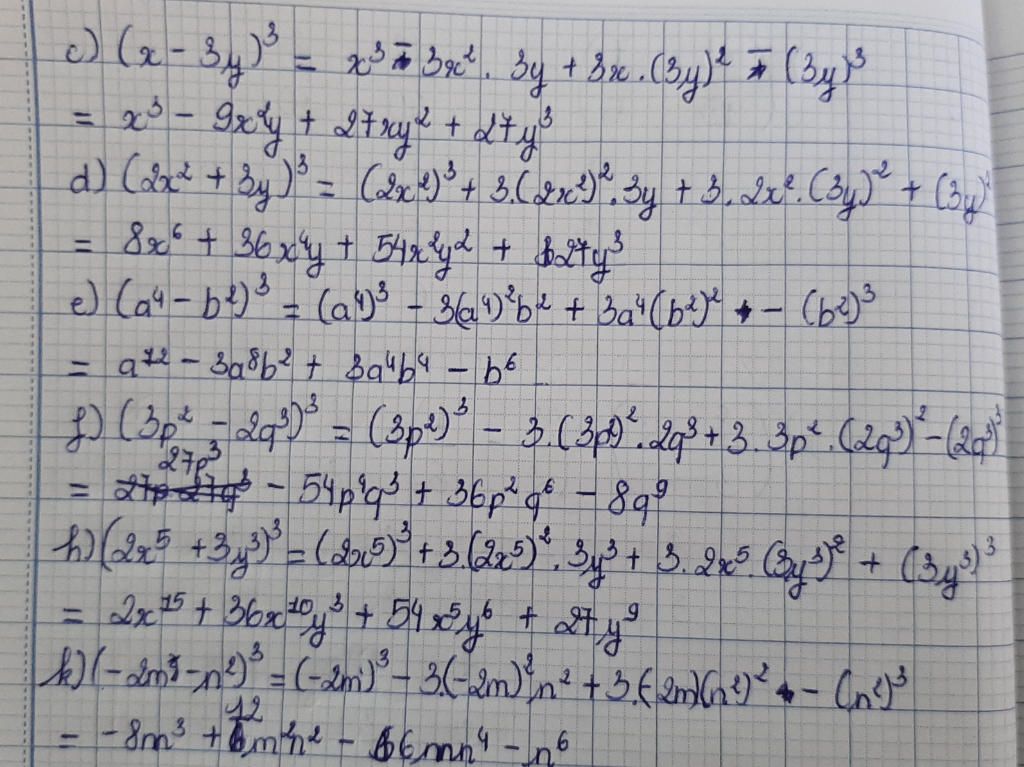 c) (x - 3y)³ = x³ - 3x² . 3y + 3x . (3y)² - (3y)³
= x³ - 9x²y + 27xy² + 27y³
d) (2x² + 3y)³ = (2x²)³ + 3.(2x²)² . 3y + 3 . 2x² . (3y)² + (3y)
= 8x⁶ + 36x⁴y + 54x²y² + 27y³
e) (a⁴ - b²)³ = (a⁴)³ - 3(a⁴)²b² + 3a⁴(b²)² - (b²)³
= a¹² - 3a⁸b² + 3a⁴b⁴ - b⁶
f) (3p² - 2q³)³ = (3p²)³ - 3.(3p²)² . 2q³ + 3 . 3p² . (2q³)² - (2q³)³
= 27p³ - 54p⁴q³ + 36p²q⁶ - 8q⁹
h) (2x⁵ + 3y³)³ = (2x⁵)³ + 3.(2x⁵)² . 3y³ + 3 . 2x⁵ . (3y³)² + (3y³)³
= 2x¹⁵ + 36x¹⁰y³ + 54x⁵y⁶ + 27y⁹
k) (-2m - n²)³ = (-2m)³ - 3.(-2m)²n² + 3.(-2m)(n²)² - (n²)³
= -8m³ + 12m²n² - 6mn⁴ - n⁶